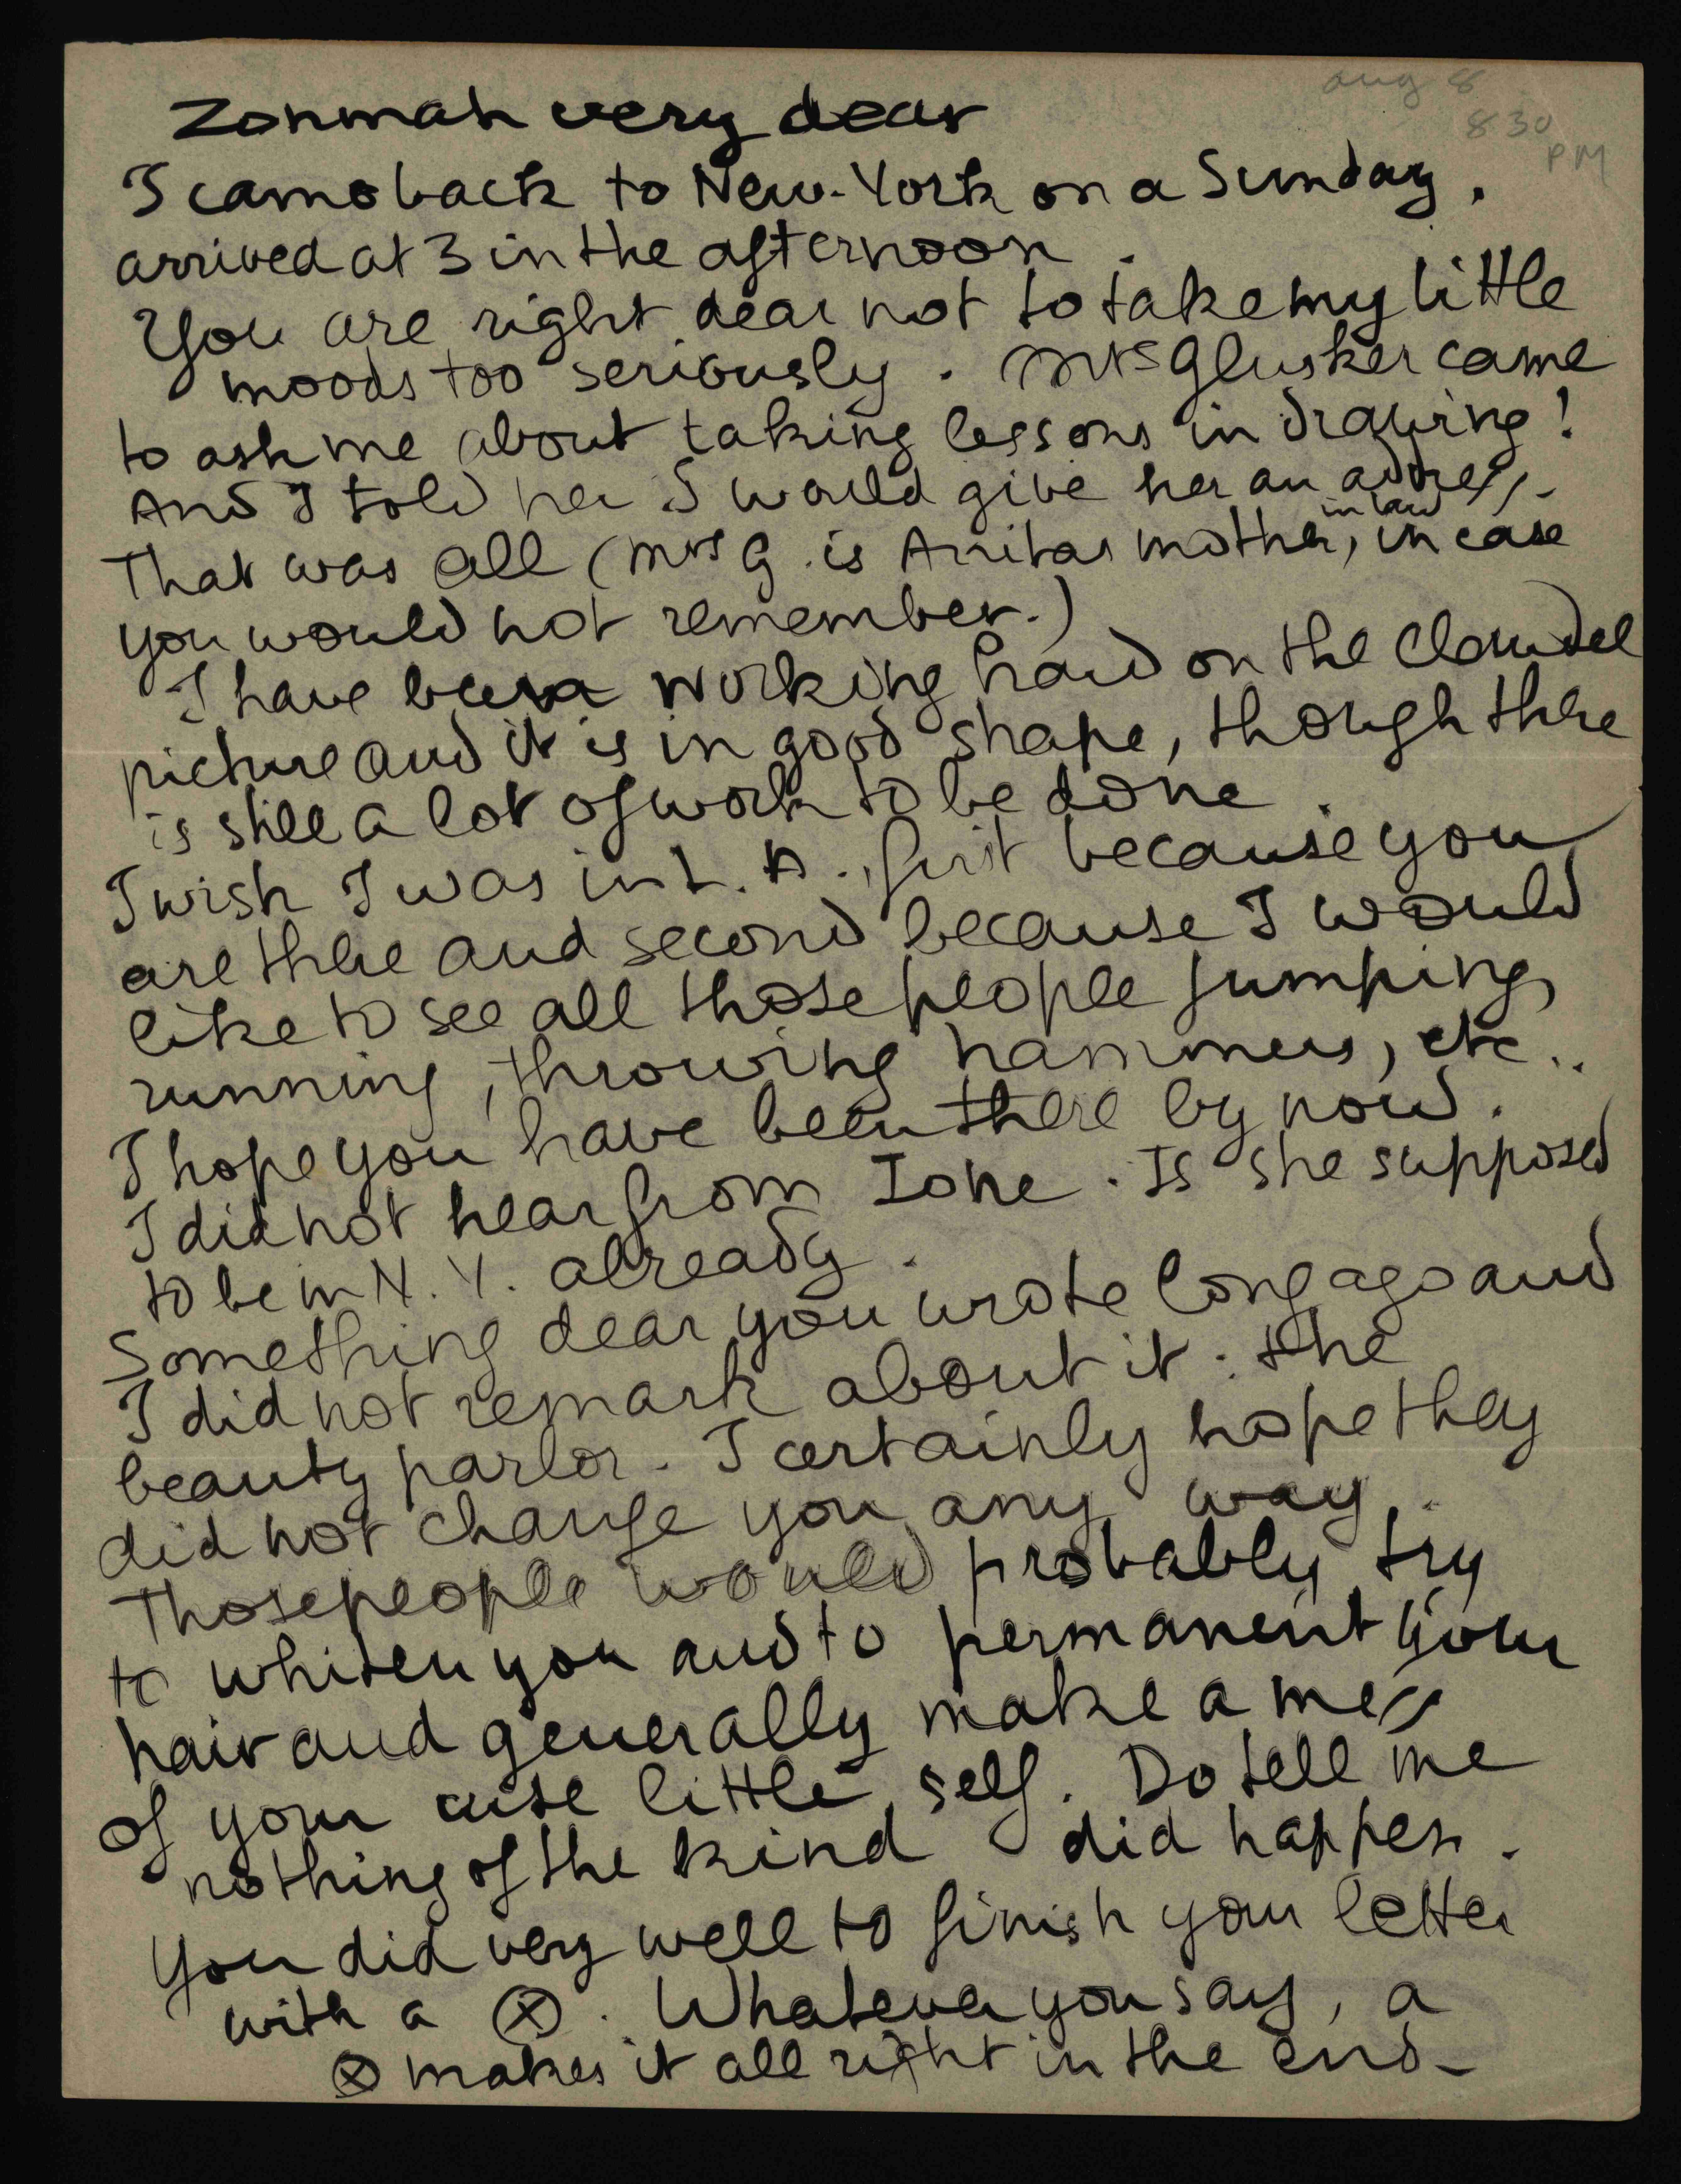 aug 8
8 30
PM
Zohmah very dear
I came back to New-York on a Sunday,
arrived at 3 in the afternoon.
You are right dear not to take my little
moods too seriously. Mrs Glusker came
to ask me about taking lessons in drawing!
And I told her I would give her an address.
That was all (Mrs G. is Anitas mother in law, in case
you would not remember.)
I have been working hard on the Claudel
picture and it is in good shape, though there
is still a lot of work to be done.
I wish I was in L.A., first because you
are there and second because I would
like to see all those people jumping,
running, throwing hammers, etc..
I hope you have been there by now.
I did not hear from Ione. Is she supposed
to be in N.Y. already.
Something dear you wrote long ago and
I did not remark about it: the
beauty parlor. I certainly hope they
did not change you any way.
Those people would probably try
to whiten you and to permanent your
hair and generally make a mess
of your cute little self. Do tell me
nothing of the kind did happen.
You did very well to finish your letter
with a ⊗. Whatever you say, a
⊗ makes it all right in the end-